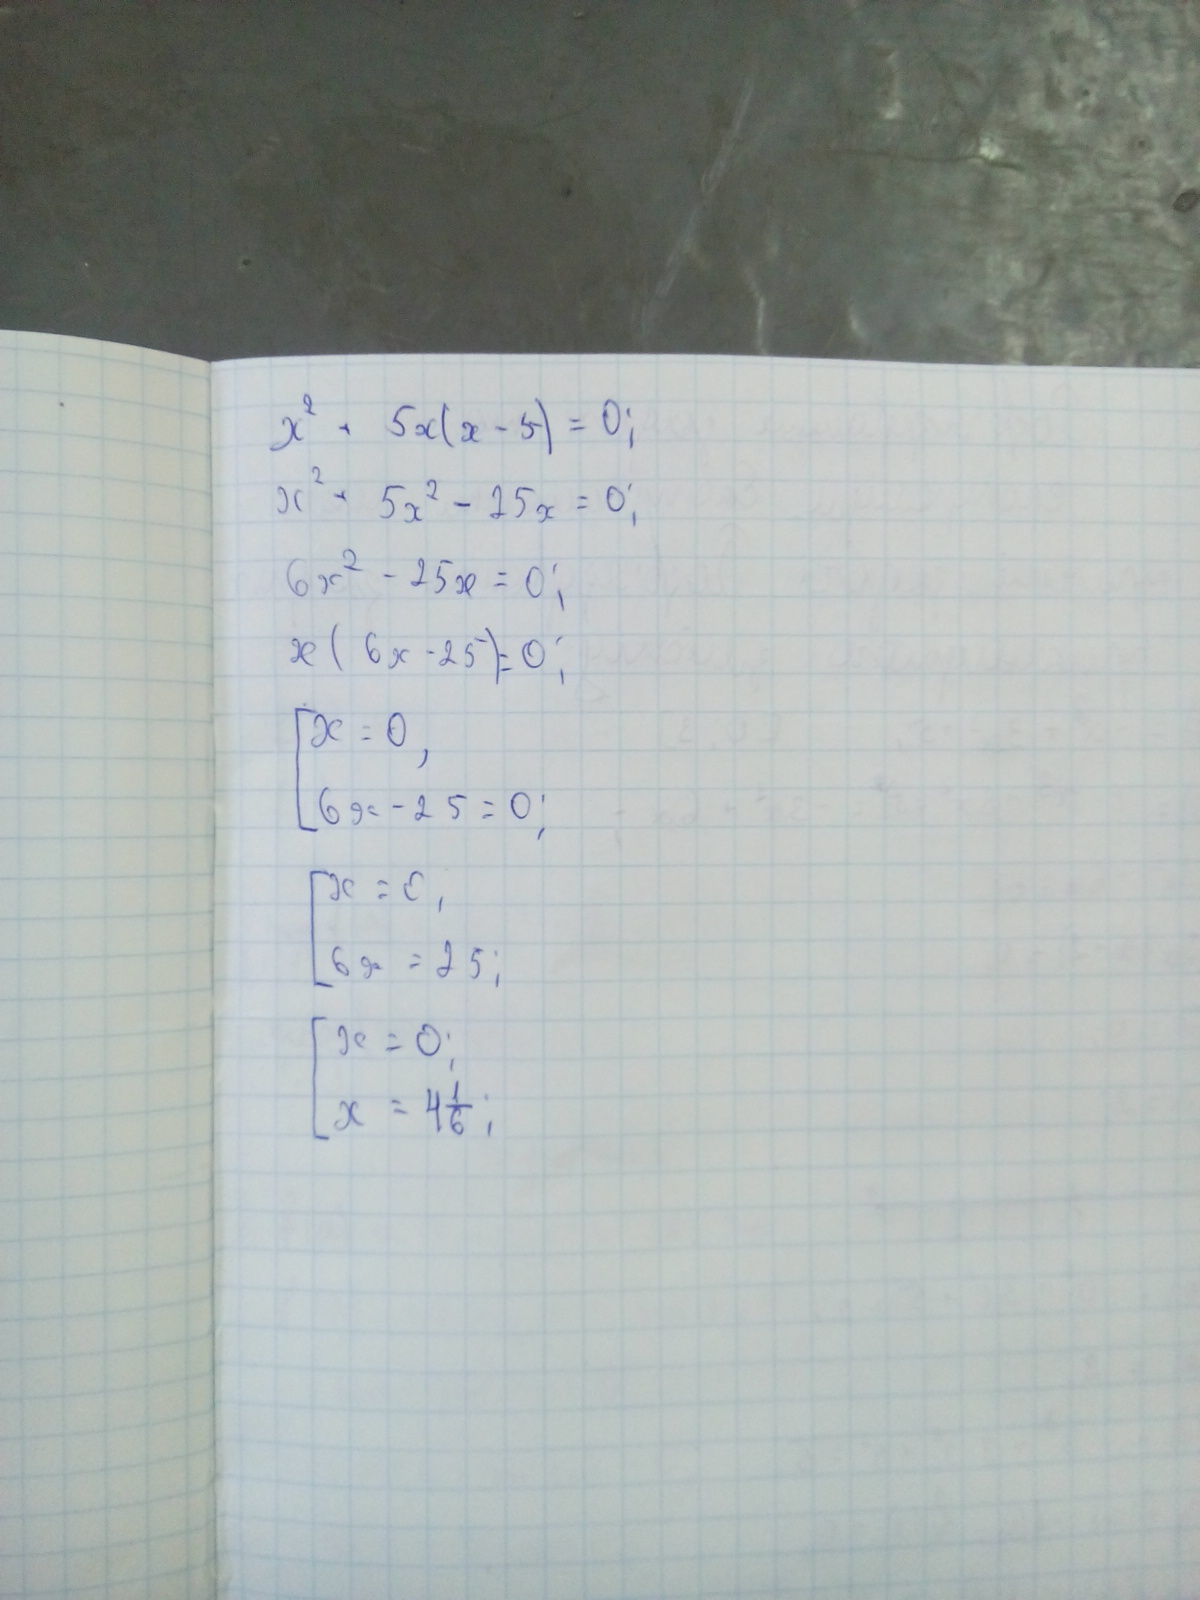 x² + 5x(x - 5) = 0;
x² + 5x² - 25x = 0;
6x² - 25x = 0;
x(6x - 25) = 0;
[x = 0,
6x - 25 = 0;
[x = 0,
6x = 25;
[x = 0;
x = 4 1/6;